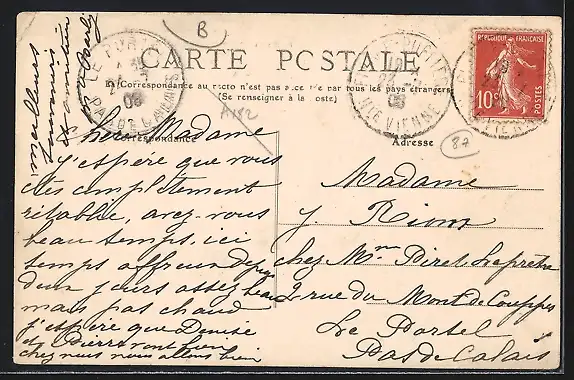 B
CARTE POSTALE
La Correspondance au recto n'est pas acceptée par tous les pays étrangers
(Se renseigner à la Poste)
Correspondance
Adresse
A182
87
RÉPUBLIQUE FRANÇAISE
10c
POSTES
LE PORTEL
PAS DE CALAIS
08
HTE VIENNE
Meilleurs
souvenirs
et amitiés
Chère Madame
j'espère que vous
êtes complètement
rétablie, avez-vous
beau temps, ici
temps affreux depuis
deux jours assez beau
mais pas chaud
j'espère que Denise
et Pierre vont bien
chez nous nous allons bien
Madame
J Rion
chez Mme Piret Leprêtre
2 rue du Mont de Couppes
Le Portel
Pas de Calais